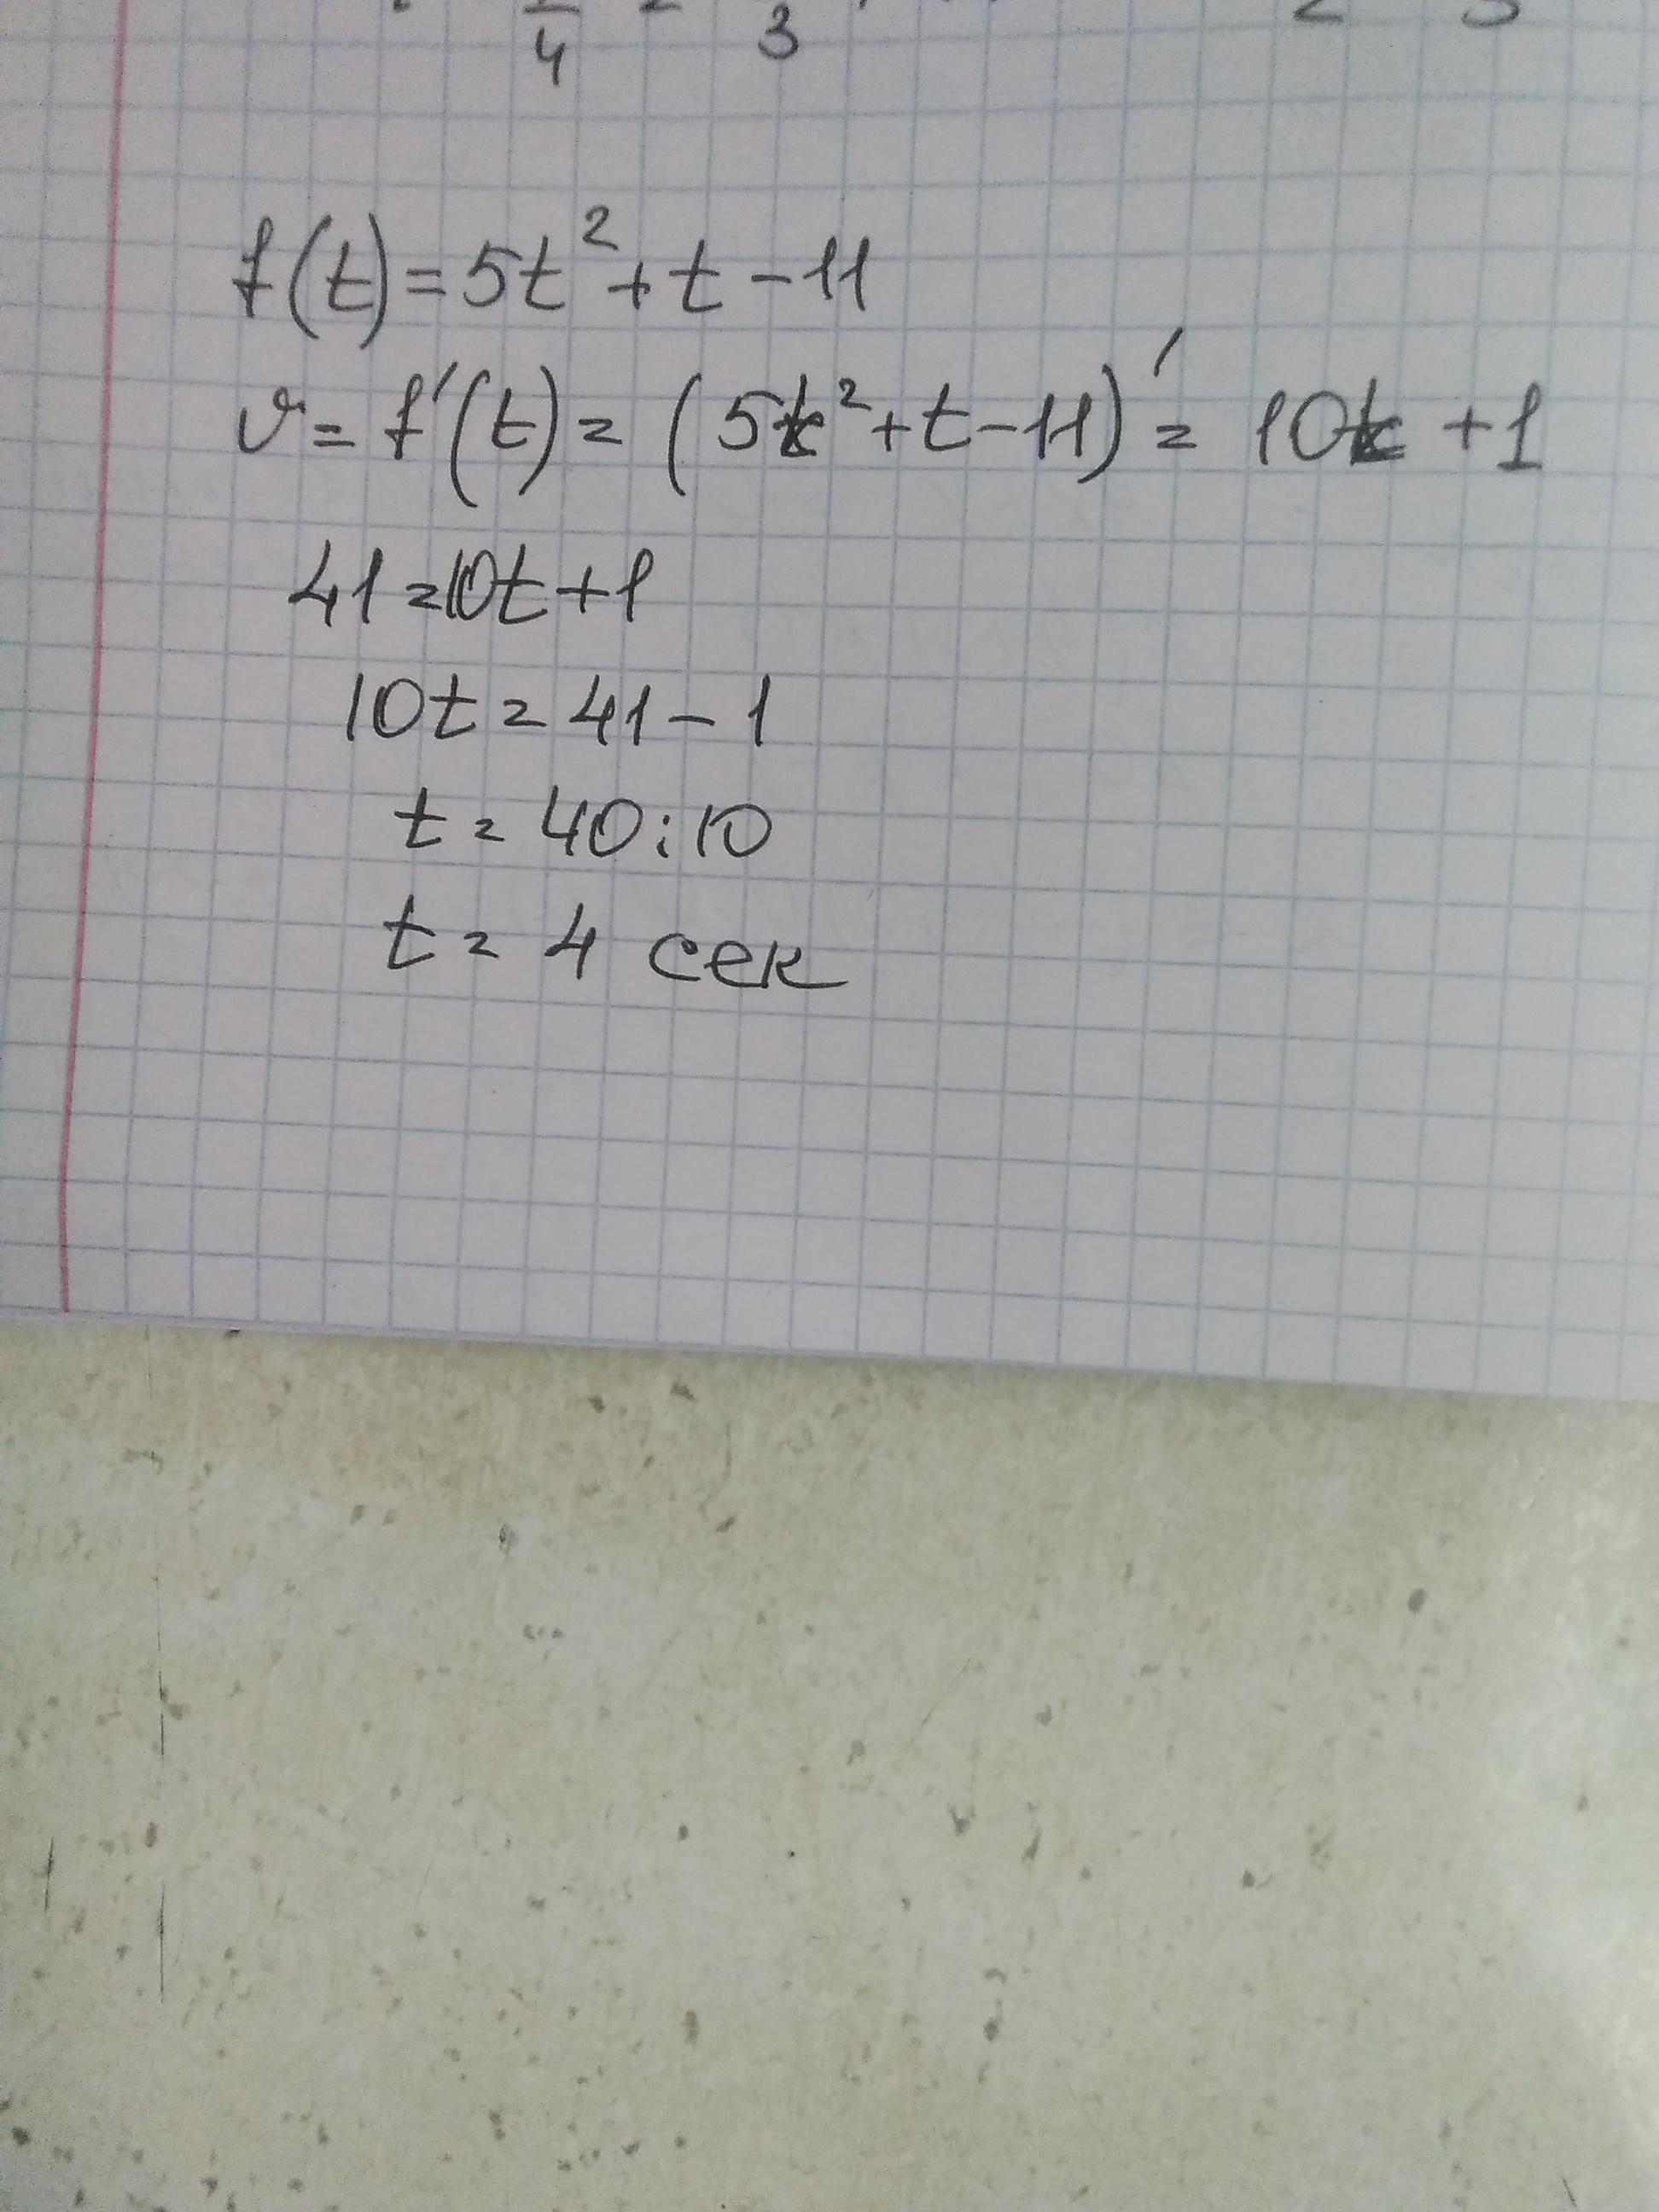 4 3
f(t)=5t²+t-11
v=f'(t)=(5t²+t-11)'=10t+1
41=10t+1
10t=41-1
t=40:10
t=4 сек